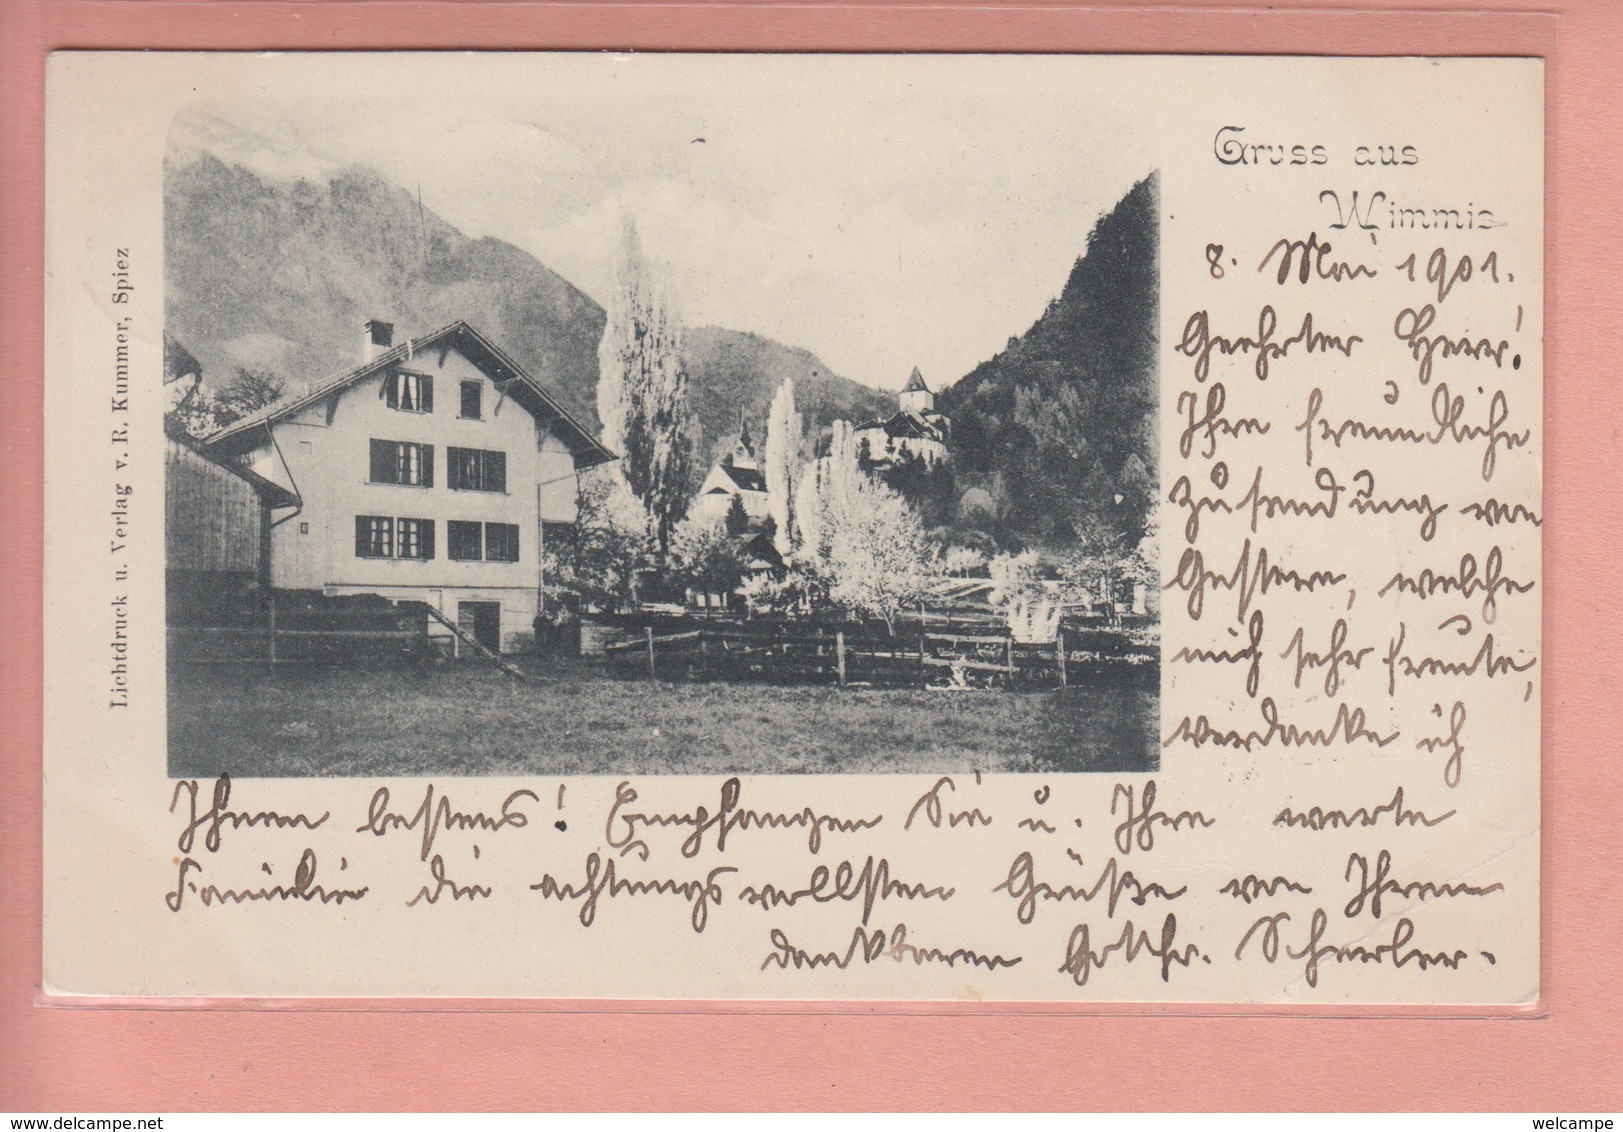 Gruss aus
Wimmis
8. Mai 1901.
Geehrter Herr!
Ihre freundliche
Zusendung von
Gestern, welche
mich sehr freute,
verdanke ich
Ihnen bestens! Empfangen Sie u. Ihre werte
Familie die achtungsvollsten Grüße von Ihrem
dankbaren Gotthr.
Lichtdruck u. Verlag v. R. Kummer, Spiez
delcampe.net
welcampe